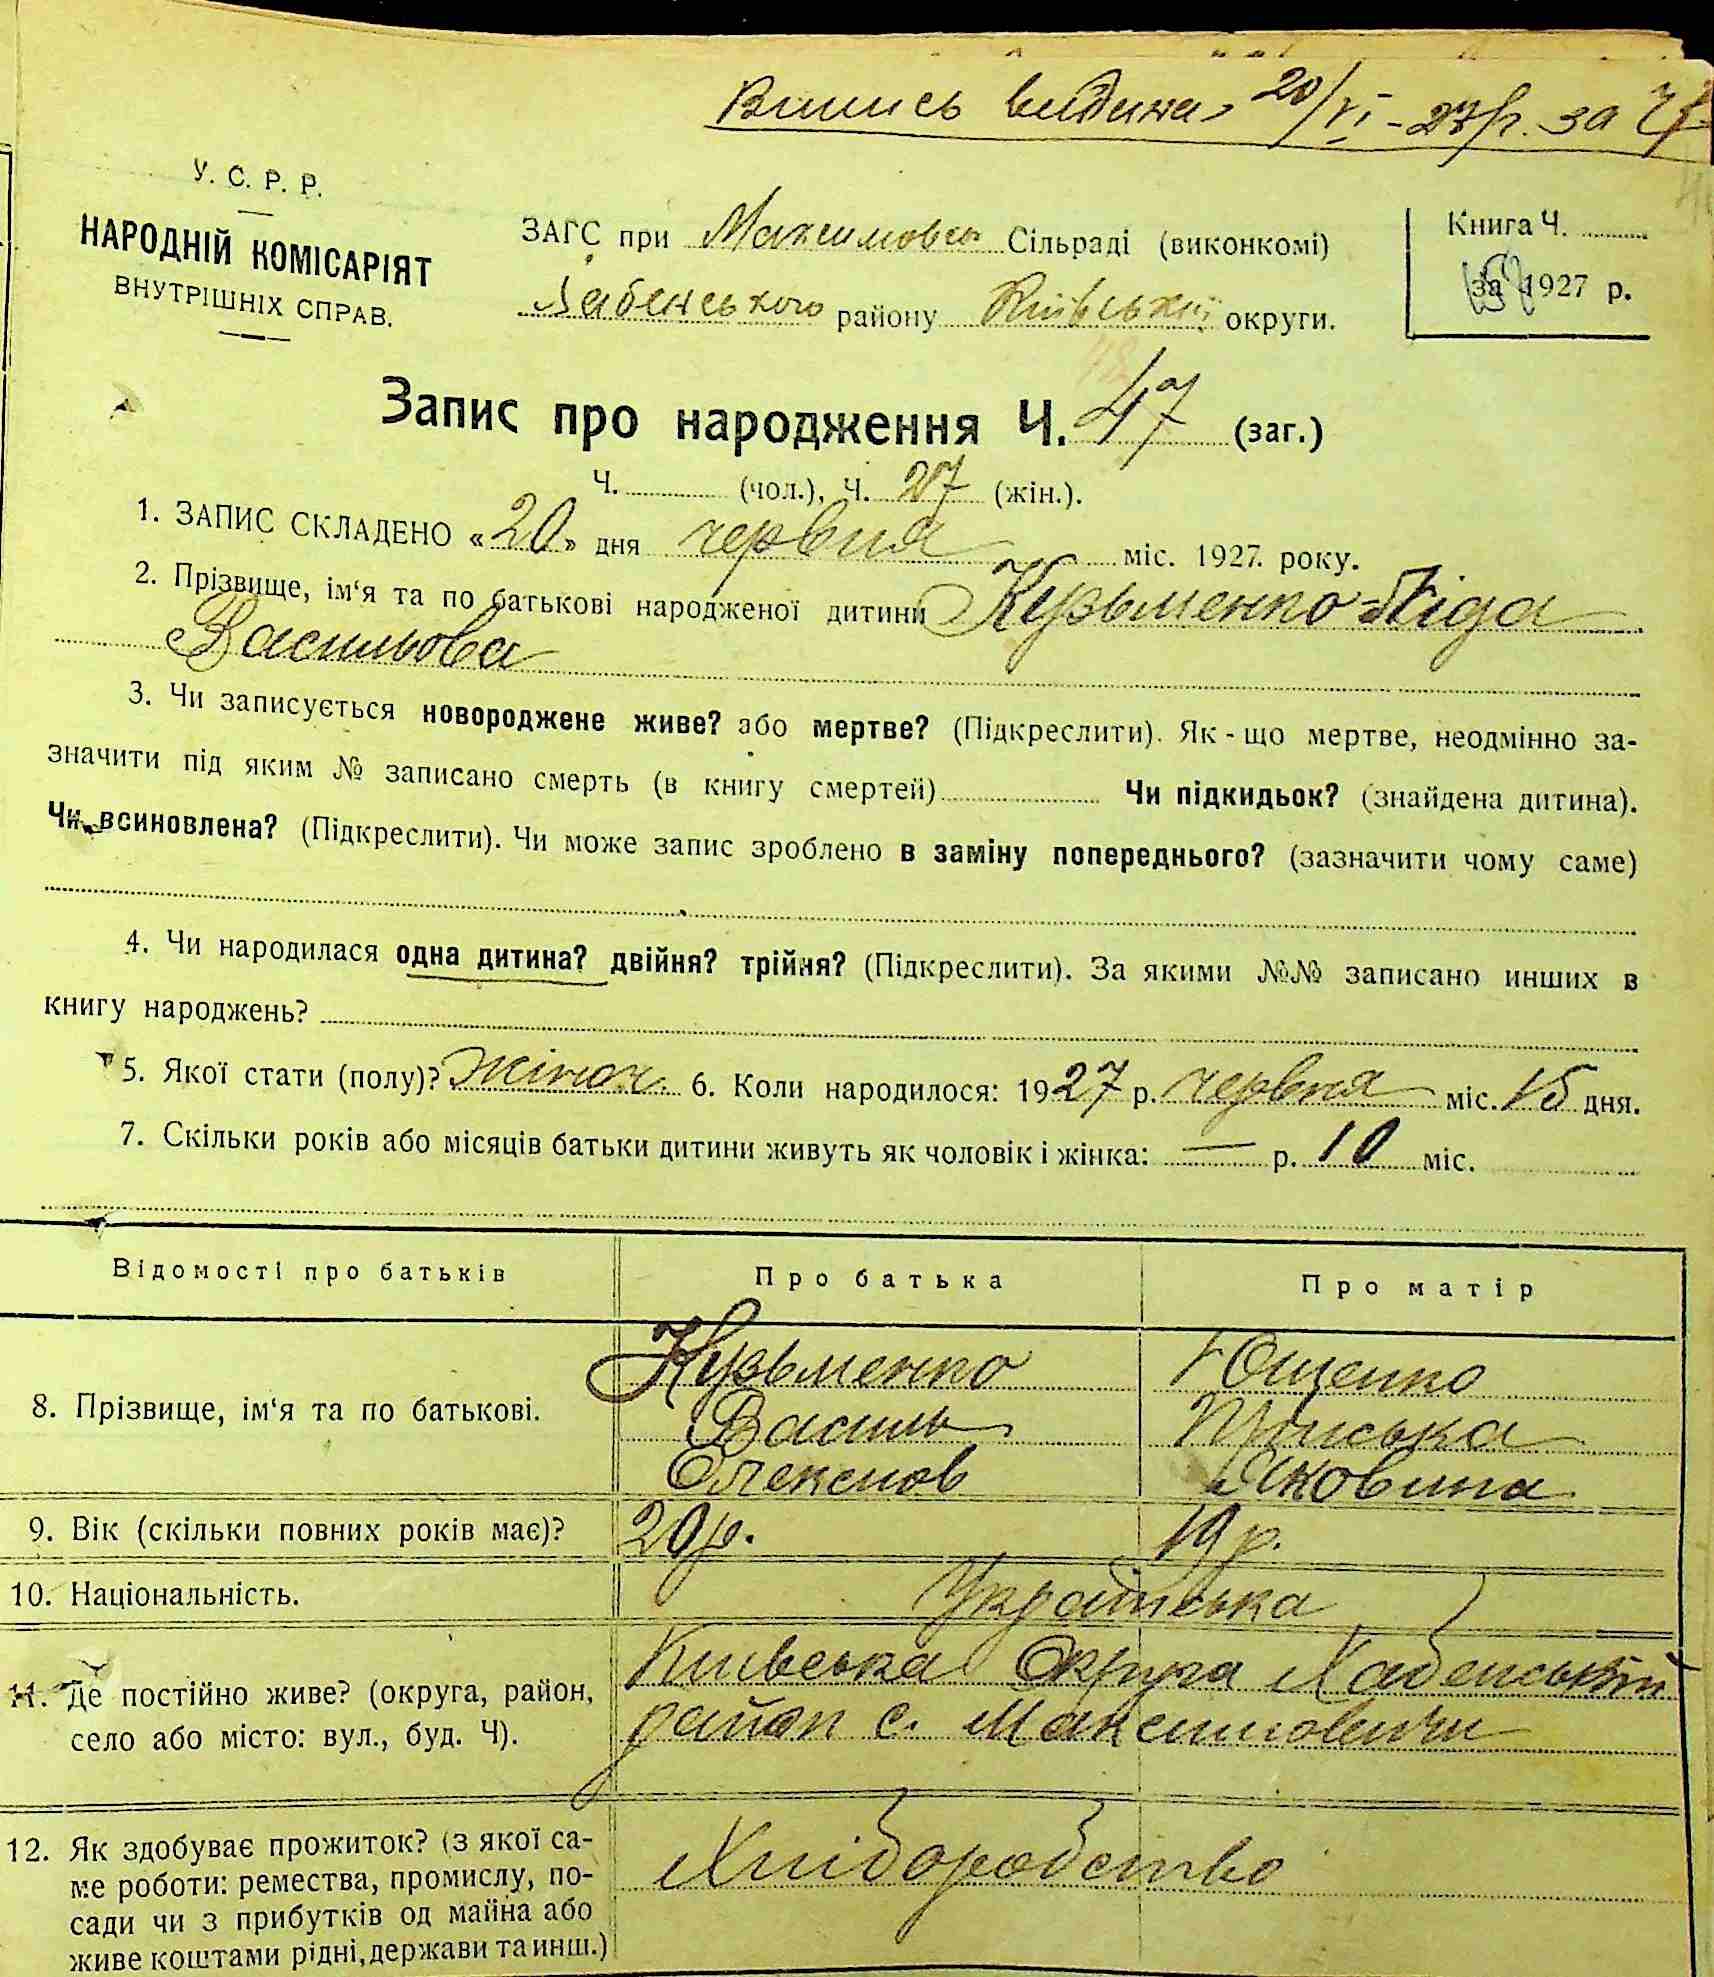 Випись видана 20/VI-27р. за Ч
У. С. Р. Р.
НАРОДНІЙ КОМІСАРІЯТ
ВНУТРІШНІХ СПРАВ.
ЗАГС при Максимовськ Сільраді (виконкомі)
Хабенського району Київської округи.
Книга Ч.
за 1927 р.
Запис про народження Ч. 47 (заг.)
Ч. (чол.), Ч. 27 (жін.).
1. ЗАПИС СКЛАДЕНО «20» дня червня міс. 1927. року.
2. Прізвище, ім‘я та по батькові народженої дитини Кузьменко Ліда
Васильова
3. Чи записується новороджене живе? або мертве? (Підкреслити). Як - що мертве, неодмінно за-
значити під яким № записано смерть (в книгу смертей) Чи підкидьок? (знайдена дитина).
Чи всиновлена? (Підкреслити). Чи може запис зроблено в заміну попереднього? (зазначити чому саме)
4. Чи народилася одна дитина? двійня? трійня? (Підкреслити). За якими №№ записано инших в
книгу народжень?
5. Якої стати (полу)? Жіноч. 6. Коли народилося: 1927 р. червня міс. 15 дня.
7. Скільки років або місяців батьки дитини живуть як чоловік і жінка: — р. 10 міс.
Відомості про батьків Про батька Про матір
8. Прізвище, ім‘я та по батькові.
Кузьменко Ющенко
Василь Пріська
Олексиов Яковина
9. Вік (скільки повних років має)? 20 р. 19 р.
10. Національність. Українська
11. Де постійно живе? (округа, район,
село або місто: вул., буд. Ч).
Київська Округа Хабенський
район с. Максимовичи
12. Як здобуває прожиток? (з якої са-
ме роботи: ремества, промислу, по-
сади чи з прибутків од майна або
живе коштами рідні, держави та инш.)
Хліборобство